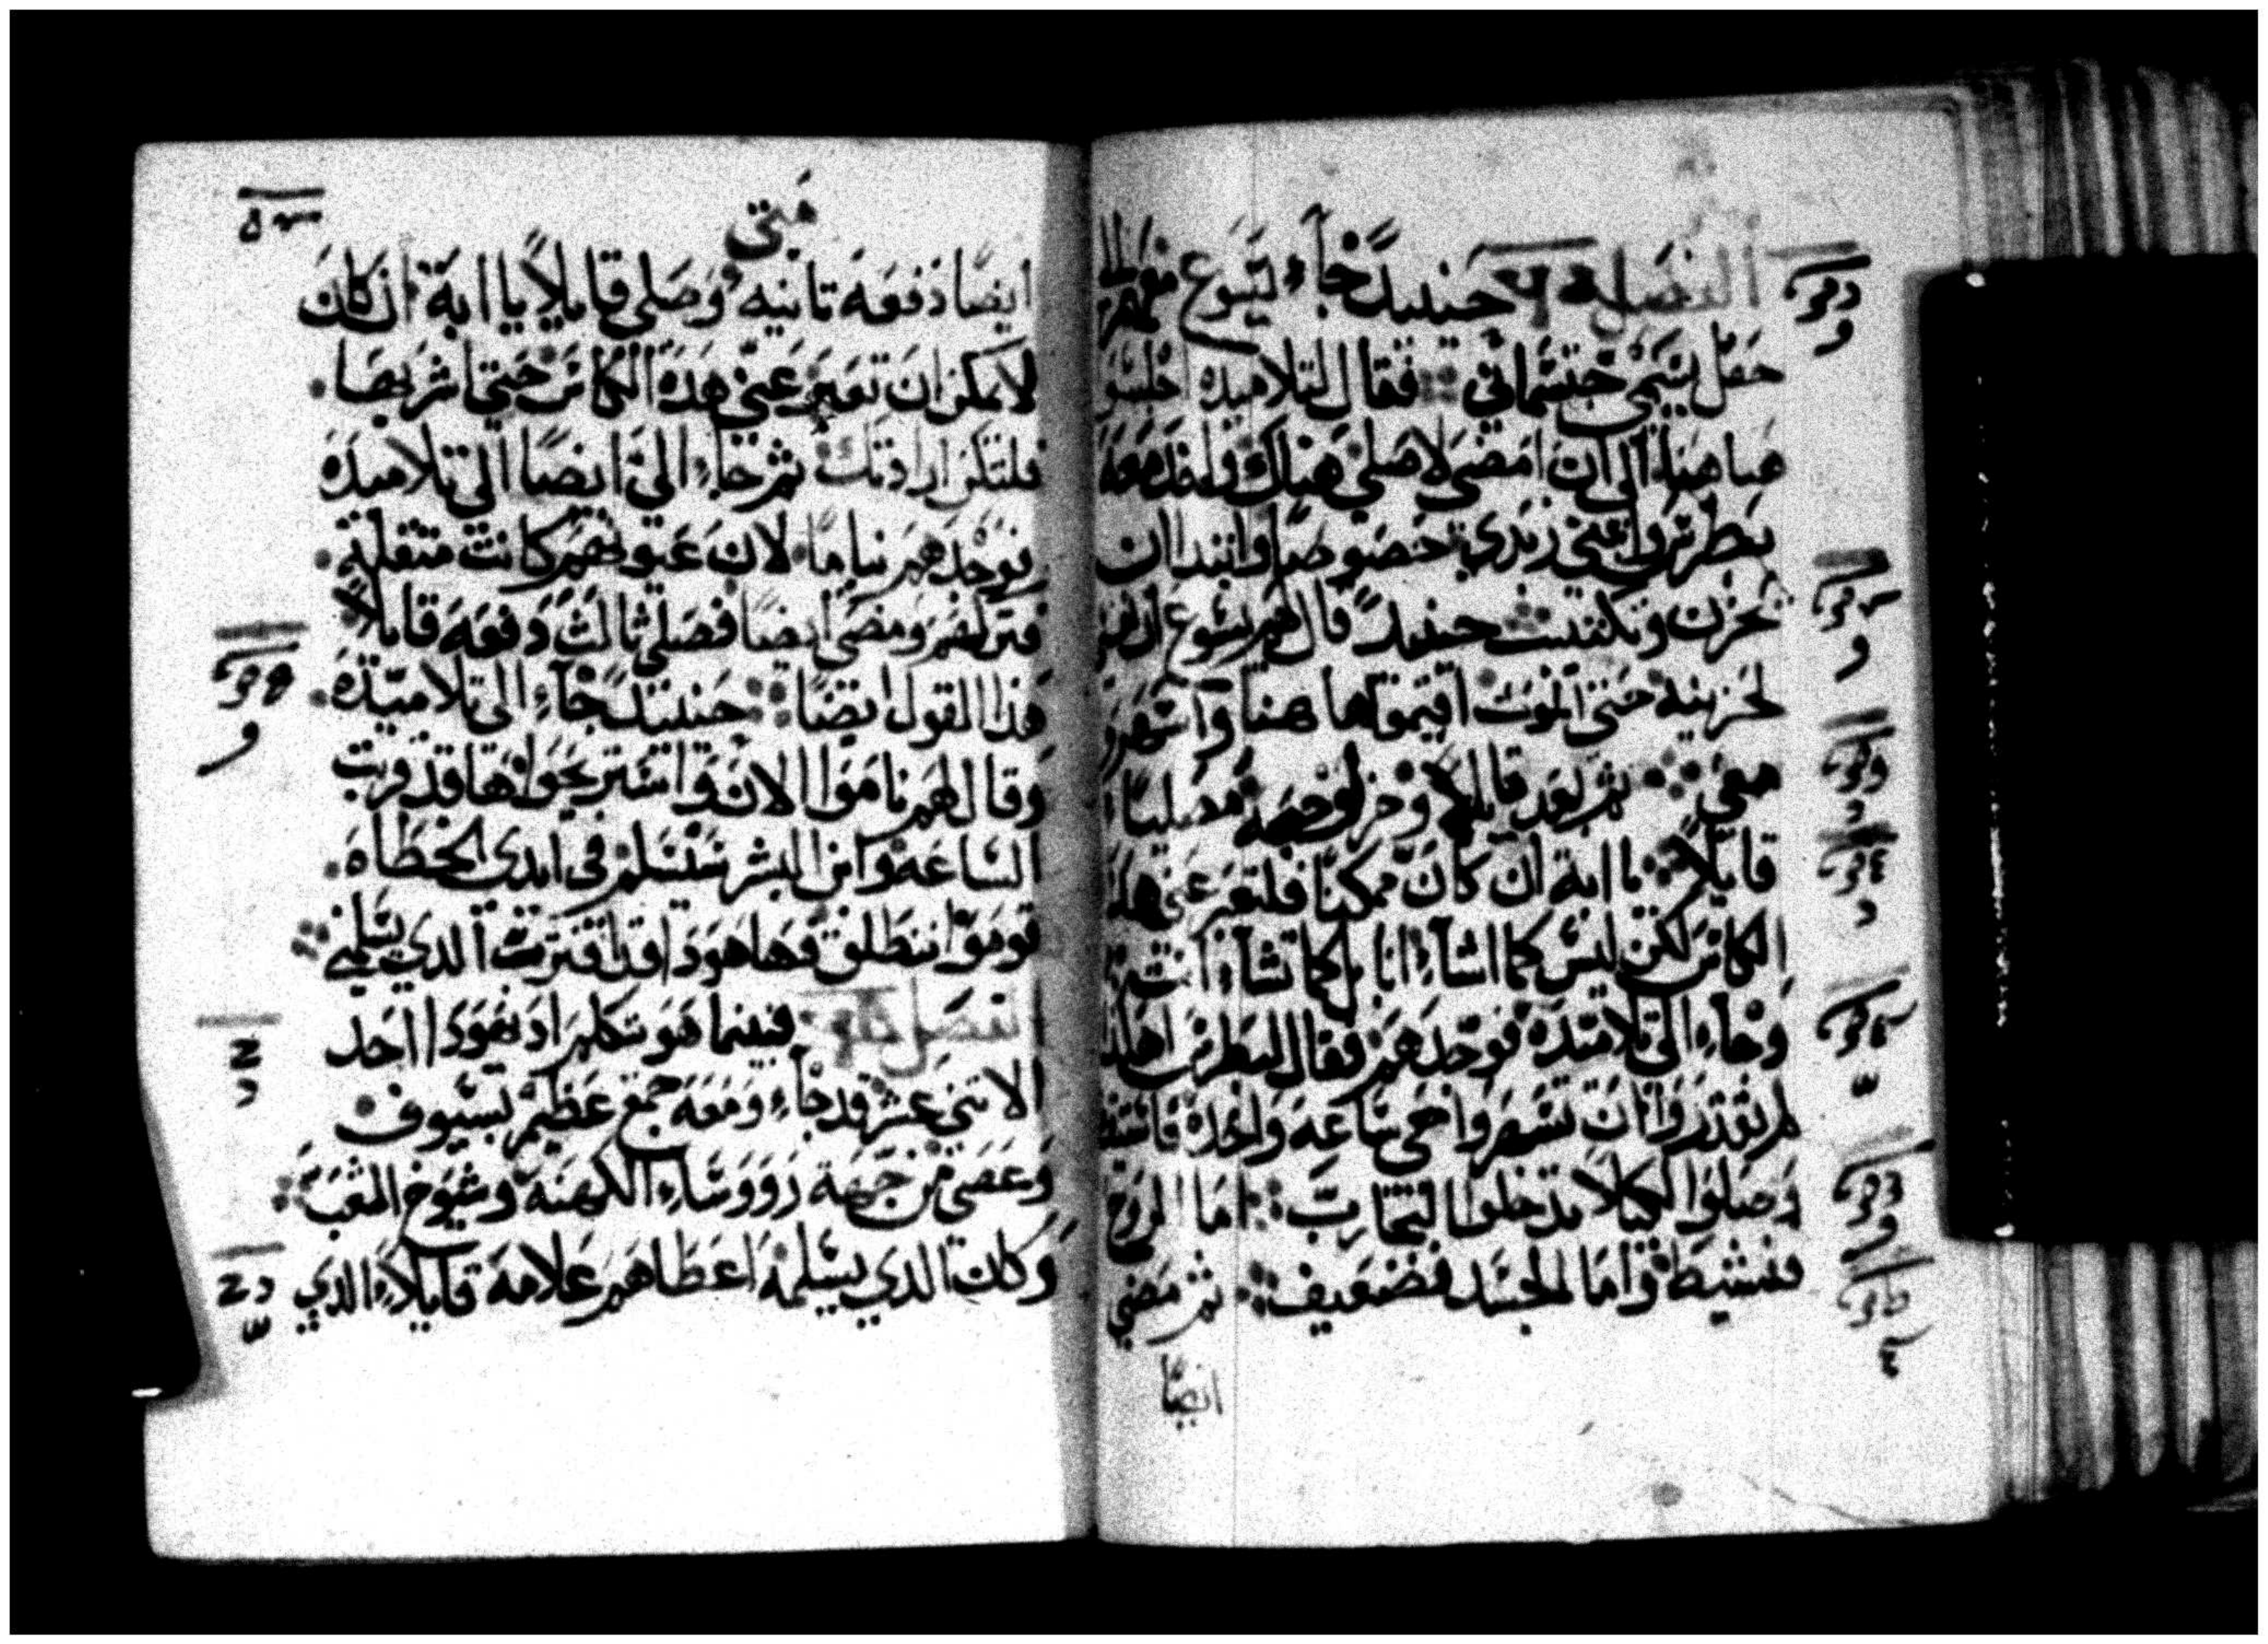 الفصل حينيدً جآء يسوع معهم الى
حقل يسمى جتسماني فقال لتلاميده اجلسو
هاهنا الى ان امضى لاصلي هناك واخد معه
بطرس وابني زبدي خصوصًا وابتدا ان
يحزن ويكتيب حينيدً قال لهم يسوع ان نفسي
لحزينه حتى الموت اقيموا هاهنا واسهرو
معي ثم بعد قليلاً وخر لوجهه مصليًا
قايلاً يا ابة ان كان ممكنًا فلتعبر عني هذه
الكاس لكن ليس كما اشاء انا بل كما تشاء انت
وجاء الى تلاميده فوجدهم فقال لبطرس اهكذا
لم تقدروا ان تسهروا معي ساعه واحده فاستيقظو
وصلوا لكيلا تدخلوا التجارب اما الروح
فنشيط واما الجسد فضعيف ثم مضي
ايضًا
متى
ايضًا دفعه تانيه وصلى قايلاً يا ابة ان كان
لا يمكن ان تعبر عني هده الكاس حتى اشربها
فلتكن ارادتك ثم جاء الى ايضًا الى تلاميده
فوجدهم نيامًا لان عيونهم كانت متقله
فتركهم ومضى ايضًا فصلى ثالث دفعه قايلاً
هذا القول ايضًا حينيدً جاء الى تلاميده
وقال لهم ناموا الان واستريحوا ها قد قربت
الساعه وابن البشر سيسلم في ايدي الخطاه
قوموا ننطلق فها هودا قد اقترب الدي يسلمني
فصل فبينما هو يتكلم اد يهودا احد
الاتني عشر قد جاء ومعه جمع عظيم بسيوف
وعصي من جهة رووساء الكهنه وشيوخ الشعب
وكان الدي يسلمه اعطاهم علامه قايلاً الدي